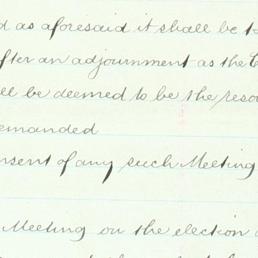 d as aforesaid it shall be t
fter an adjournment as the C
ll be deemed to be the reso
emanded
nsent of any such Meeting
Meeting on the election o